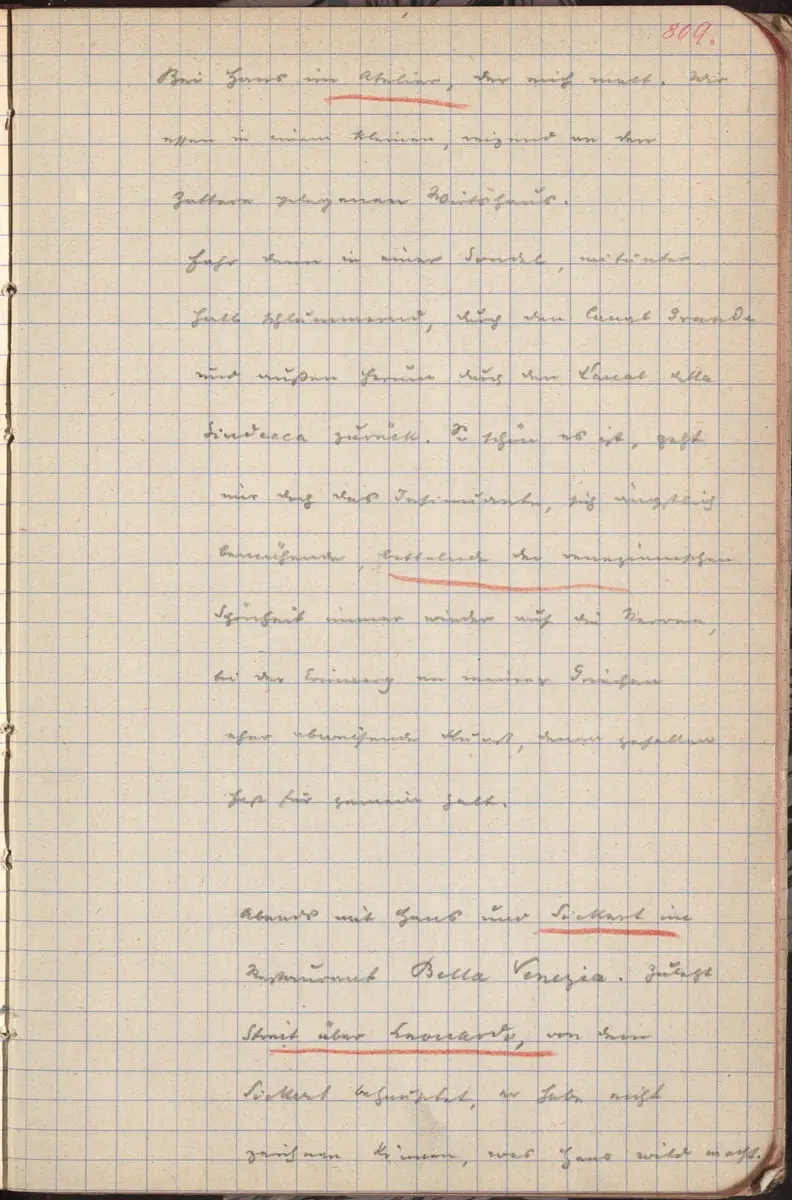 809.
Bei Hans im Atelier, der mich malt. Wir
essen in einem kleinen, reizend an den
Zattere gelegenen Wirtshaus.
Fahr dann in einer Gondel, mitunter
halb schlummernd, durch den Canal Grande
und außen herum durch den Kanal della
Giudecca zurück. So schön es ist, geht
mir doch das Insinuante, sich ängstlich
bemühende, bettelnde der venezianischen
Schönheit immer wieder auf die Nerven,
bei der Erinnerg an meiner Griechen
eher abweisende Kunst, denen gefallen
für gemein galt.
Abends mit Hans und Sickert im
Restaurant Bella Venezia. Zuletzt
Streit über Leonardo, von dem
Sickert behauptet, er habe nicht
zeichnen können, was Hans wild macht.